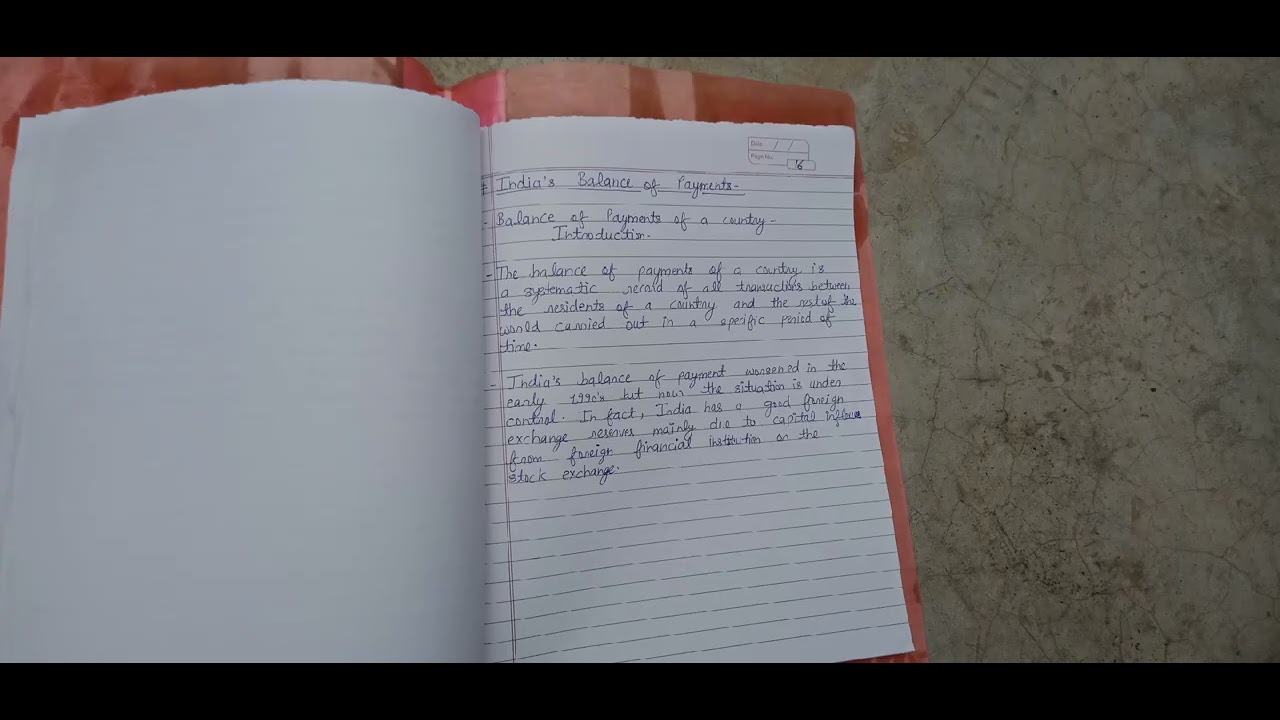 Date / /
Page No. 16
# India's Balance of Payments-
- Balance of Payments of a country-
Introduction.
- The balance of payments of a country is
a systematic record of all transactions between
the residents of a country and the rest of the
world carried out in a specific period of
time.
- India's balance of payment worsened in the
early 1990's but now the situation is under
control. In fact, India has a good foreign
exchange reserves mainly due to capital inflows
from foreign financial institution on the
stock exchange.